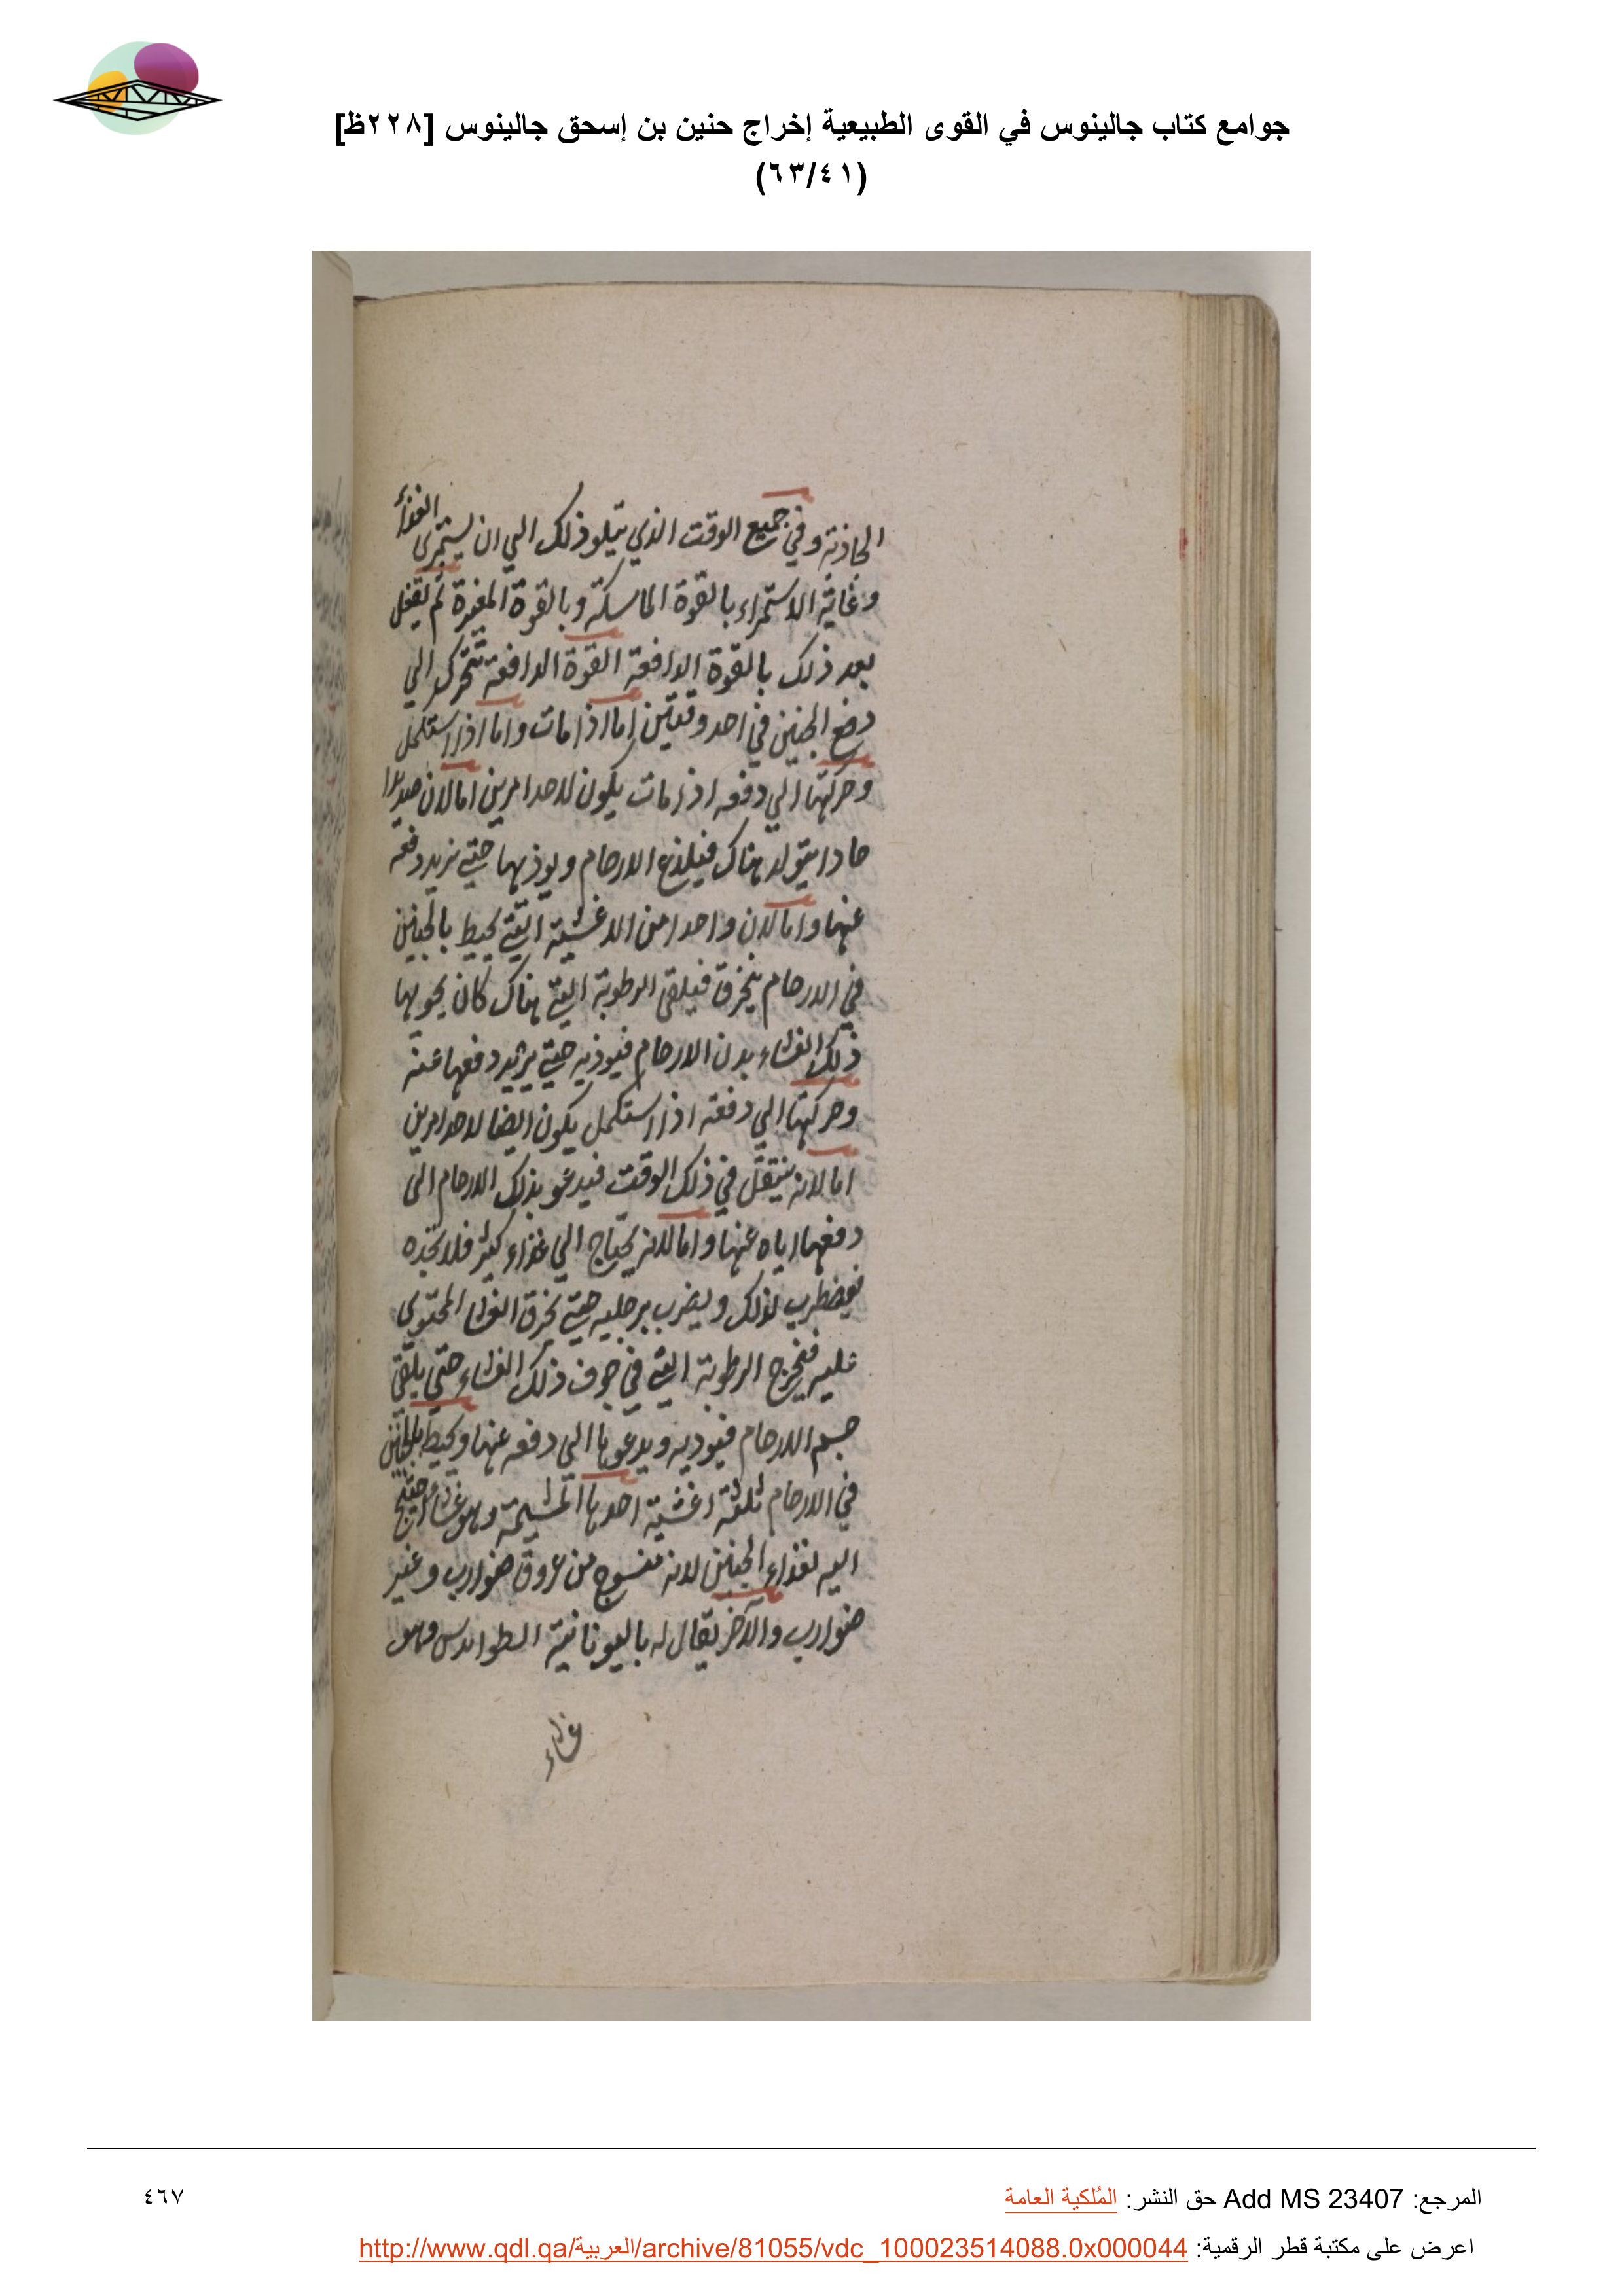 جوامع كتاب جالينوس في القوى الطبيعية إخراج حنين بن إسحق جالينوس [٢٢٨ظ]
(٦٣/٤١)
الجاذبة وفي جميع الوقت الذي يتلو ذلك الي ان يستمرى الغذأ
وغاية الاستمراء بالقوة الماسكة وبالقوة المغيرة ثم يفعل
بعد ذلك بالقوة الدافعة القوة الدافعة تتحرك الي
دفع الجنين في احد وقتين اما اذا مات واما اذا استكمل
وحركتها الي دفعه اذا مات يكون لاحد امرين اما لان صديدا
حادا يتولد هناك فيلذع الارحام ويوذيها حتي تريد دفعه
عنها واما لان واحدا من الاغشية التي تحيط بالجنين
في الارحام ينخرق فيلقي الرطوبة التي هناك كان يحويها
ذلك الغشاء بدن الارحام فيوذيه حتي يريد دفعها عنه
وحركتها الي دفعه اذا استكمل يكون ايضا لاحد امرين
اما لانه يثقل في ذلك الوقت فيدعو بذلك الارحام الى
دفعها اياه عنها واما لانه يحتاج الي غذاء كثير فلا تجده
فيضطرب لذلك ويضرب برجليه حتي يخرق الغشا المحتوي
عليه فيخرج الرطوبة التي في جوف ذلك الغشاء حتي يلقى
جسم الارحام فيوذيه ويدعوها الي دفعه عنها ويحيط بالجنين
في الارحام ثلثة اغشية احدها المشيمة وهو غشاء احتيج
اليه لغذاء الجنين لانه منسوج من عروق ضوارب وغير
ضوارب والاخر يقال له باليونانية وهو
غشاء
المرجع: Add MS 23407 حق النشر: المُلكية العامة
٤٦٧
اعرض على مكتبة قطر الرقمية: http://www.qdl.qa/العربية/archive/81055/vdc_100023514088.0x000044